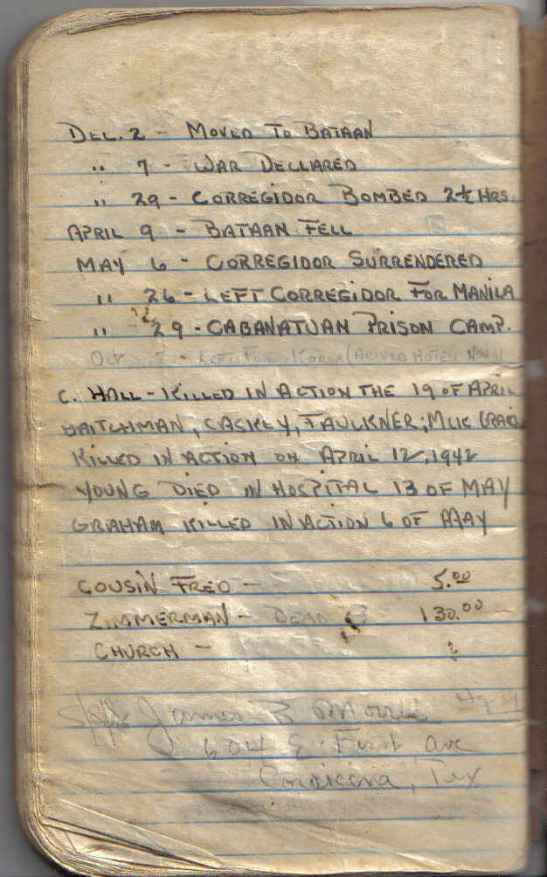 DEC. 2 - MOVED TO BATAAN
" 7 - WAR DECLARED
" 29 - CORREGIDOR BOMBED 2½ HRS.
APRIL 9 - BATAAN FELL
MAY 6 - CORREGIDOR SURRENDERED
" 26 - LEFT CORREGIDOR FOR MANILA
" 29 - CABANATUAN PRISON CAMP.
Oct - LEFT FOR
C. HALL - KILLED IN ACTION THE 19 OF APRIL
CASKEY, FAULKNER,
KILLED IN ACTION ON APRIL 12, 1942
YOUNG DIED IN HOSPITAL 13 OF MAY
GRAHAM KILLED IN ACTION 6 OF MAY
COUSIN FRED - 5.00
ZIMMERMAN - DEAD 130.00
CHURCH -
James R Morris
604 E. First Ave
Corsicana, Tex